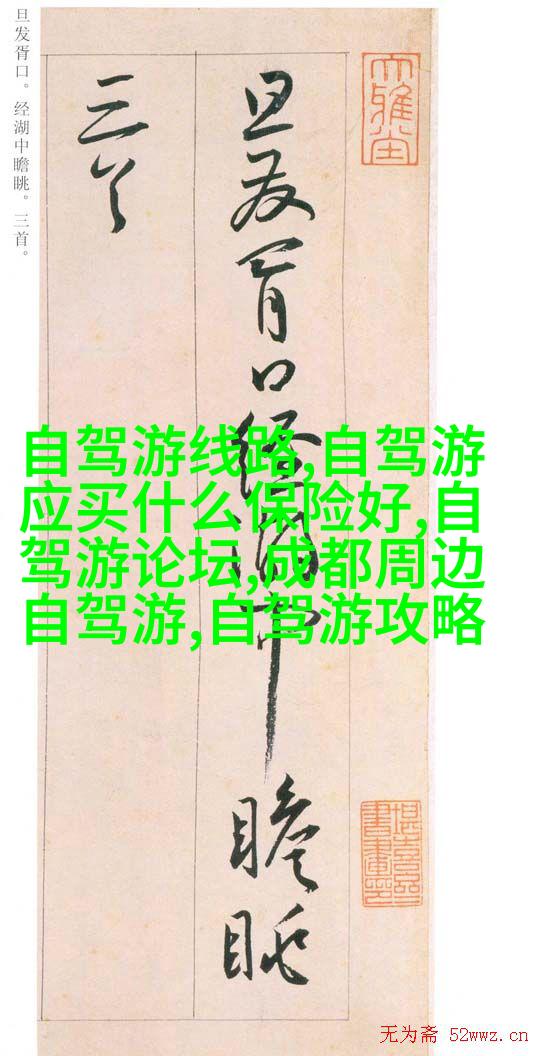 旦发胥口。经湖中瞻眺。三首。
旦发胥口经湖中瞻眺
三首
大雅堂
自驾游线路,自驾游
应买什么保险好,自
驾游论坛,成都周边
自驾游,自驾游攻略
无为斋 52wwz.cn